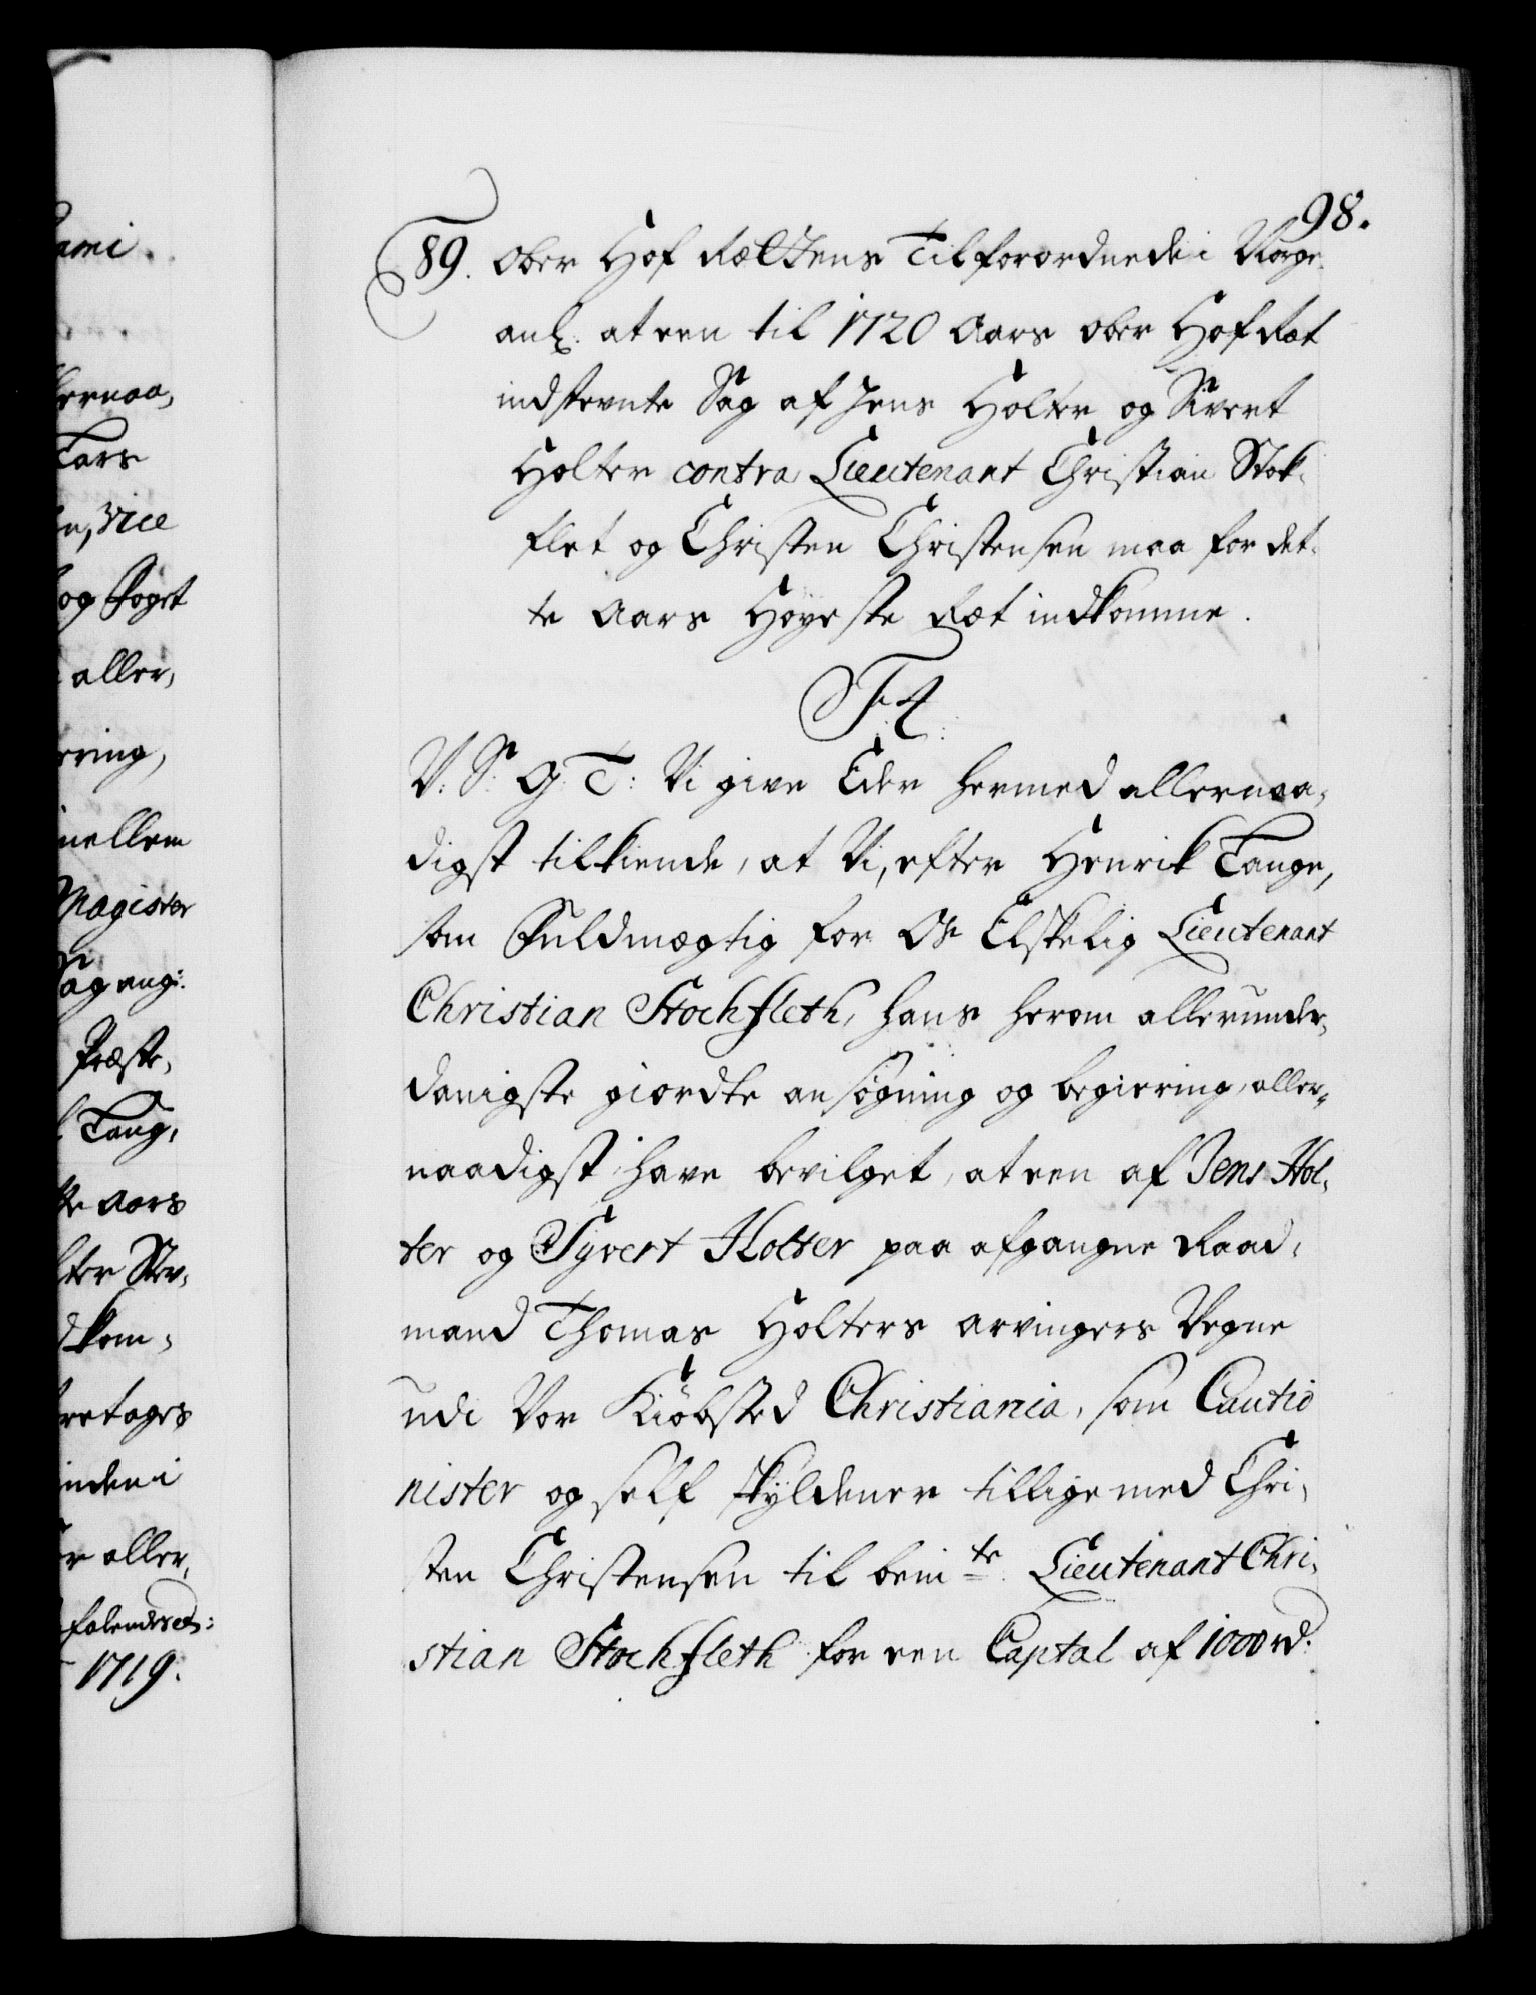 98.
89. Ober Hof Rættens Tilforordnede i Norge
anl. at een til 1720 Aars Ober Hof Ræt
indstevnte Sag af Jens Holter og Sivert
Holter contra Lieutenant Christian Stok-
flet og Christen Christensen maa for det-
te Aars Høyeste Ræt indkomme.
F 4
V. S. G. T: Vi give Eder hermed allernaa-
digst tilkiende, at Vi, efter Henrik Tange,
som Fuldmægtig for Os Elskelig Lieutenant
Christian Stochfleth, hans herom allerunder-
danigste giordte ansøgning og begiering, aller-
naadigst have bevilget, at een af Jens Hol-
ter og Syvert Holter paa afgangne Raad-
mand Thomas Holters arvingers Vegne
udi Vor Kiøbsted Christiania, som Cautio
nister og self skyldener tillige med Chri-
sten Christensen til bemte. Lieutenant Chri-
stian Stochfleth for een Captal af 1000 rd.
ami.
ernaa,
Lars
n, Vice
og Foget
aller,
ering,
mellem
Magister
Sag ang:
Præste,
Tang,
te Aars
ter Stev,
dkom,
retages
inden i
er aller,
1719.